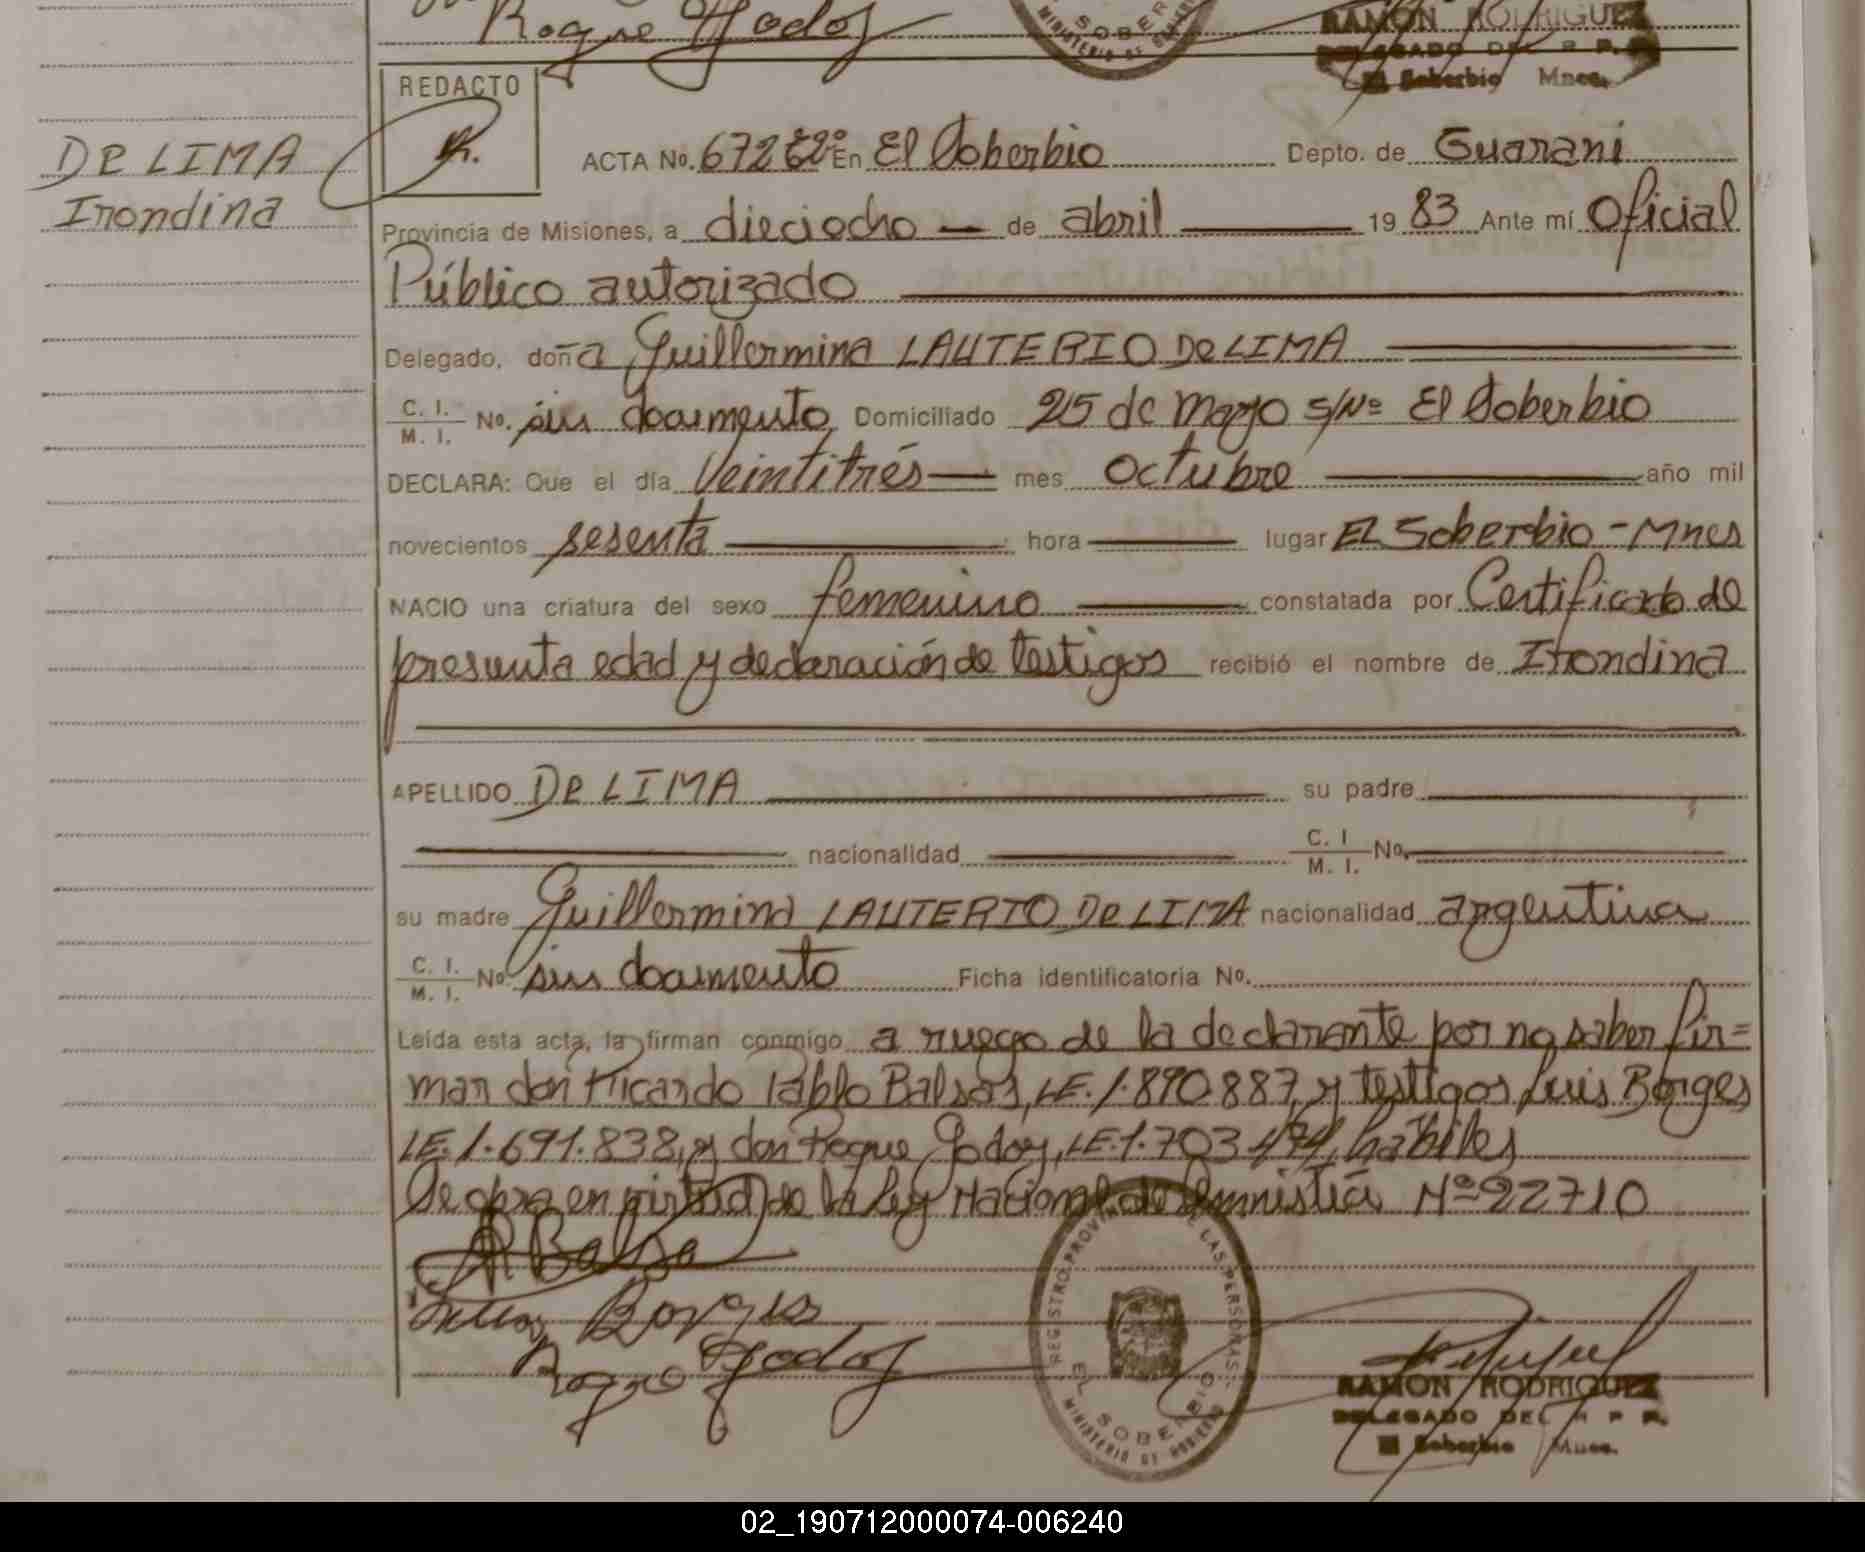 Roque Godoy
SOBER
MINISTERIO DE
RAMON RODRIGUEZ
DELEGADO DEL R. P. P.
El Soberbio Mnes.
REDACTO
DE LIMA
Irondina
ACTA No. 672 En El Soberbio Depto. de Guarani
Provincia de Misiones, a dieciocho de abril 1983 Ante mí Oficial
Público autorizado
Delegado, doña Guillermina LAUTERIO De LIMA
C. I. M. I. No. sin documento Domiciliado 25 de Mayo s/Nº El Soberbio
DECLARA: Que el día Veintitrés mes Octubre año mil
novecientos sesenta hora lugar EL Soberbio - Mnes
NACIO una criatura del sexo femenino constatada por Certificado de
presunta edad y declaración de testigos recibió el nombre de Irondina
APELLIDO De LIMA su padre
nacionalidad C. I M. I. No.
su madre Guillermina LAUTERIO De LIMA nacionalidad argentina
C. I. M. I. No. sin documento Ficha identificatoria No.
Leída esta acta, la firman conmigo a ruego de la declarante por no saber fir=
mar don Ricardo Pablo Balsas, LE. 1.890.887, y testigos Luis Borges
LE. 1.691.838, y don Roque Godoy, LE. 1.703.474, hábiles
Se obra en virtud de la Ley Nacional de Amnistía Nº 22710
Balsa
Borges
Roque Godoy
REGISTRO PROVINCIAL DE LAS PERSONAS
EL SOBERBIO
MINISTERIO DE GOBIERNO
RAMON RODRIGUEZ
DELEGADO DEL R. P. P.
El Soberbio Mnes.
02_190712000074-006240